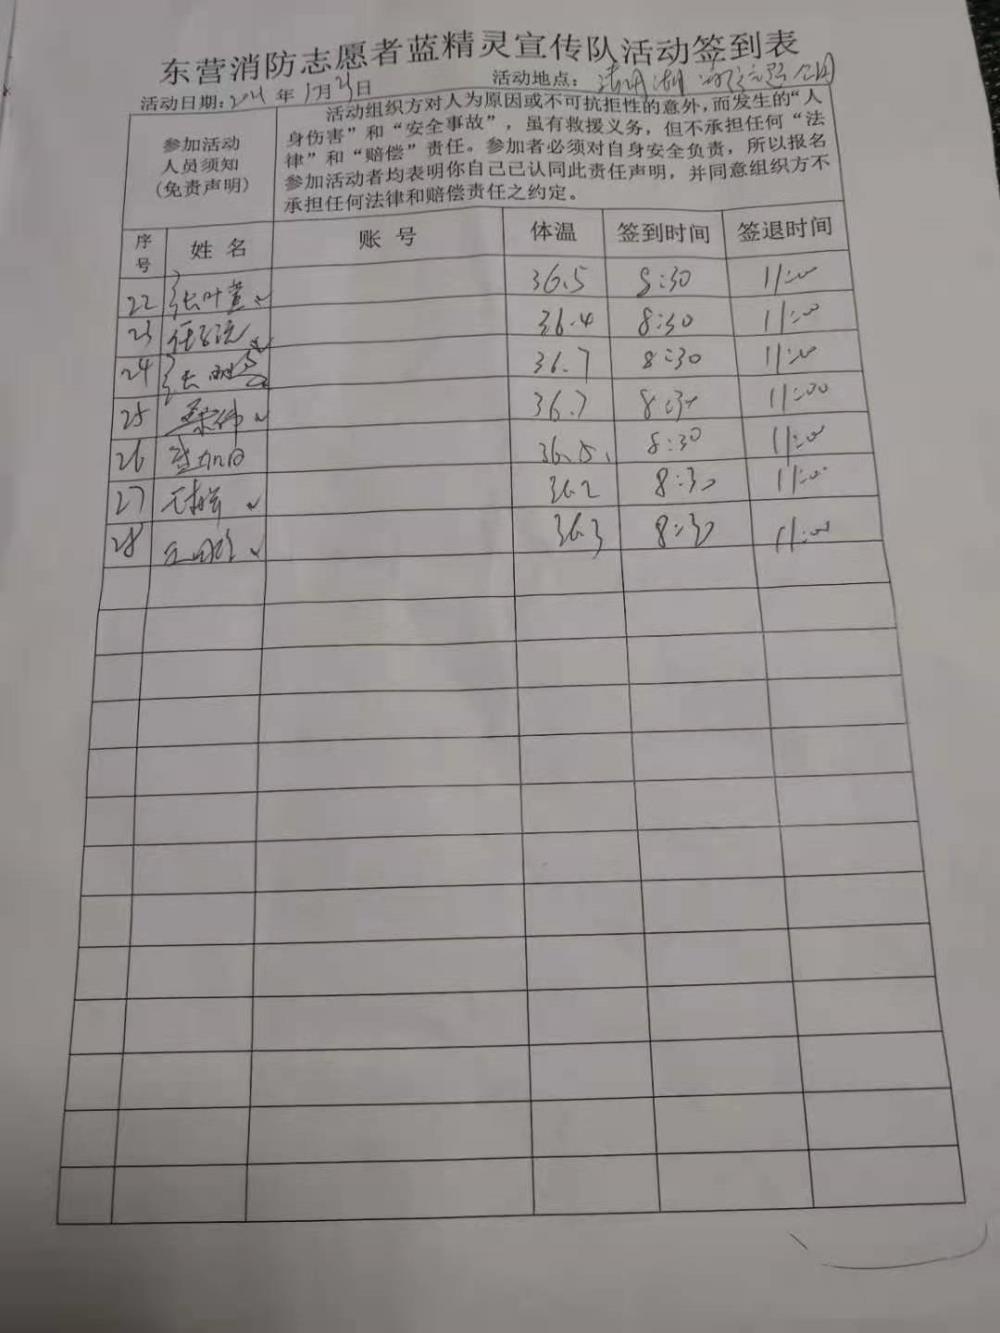 东营消防志愿者蓝精灵宣传队活动签到表
活动日期: 年 1月 日 活动地点: 清明湖 主题公园
参加活动
人员须知
(免责声明)
活动组织方对人为原因或不可抗拒性的意外,而发生的“人
身伤害”和“安全事故”,虽有救援义务,但不承担任何“法
律”和“赔偿”责任。参加者必须对自身安全负责,所以报名
参加活动者均表明你自己已认同此责任声明,并同意组织方不
承担任何法律和赔偿责任之约定。
序号 姓名 账号 体温 签到时间 签退时间
22 张叶萱 36.5 8:30 11:00
23 36.4 8:30 11:00
24 张 36.7 8:30 11:00
25 36.7 8:30 11:00
26 36.5 8:30 11:00
27 36.2 8:30 11:00
28 36.3 8:30 11:00